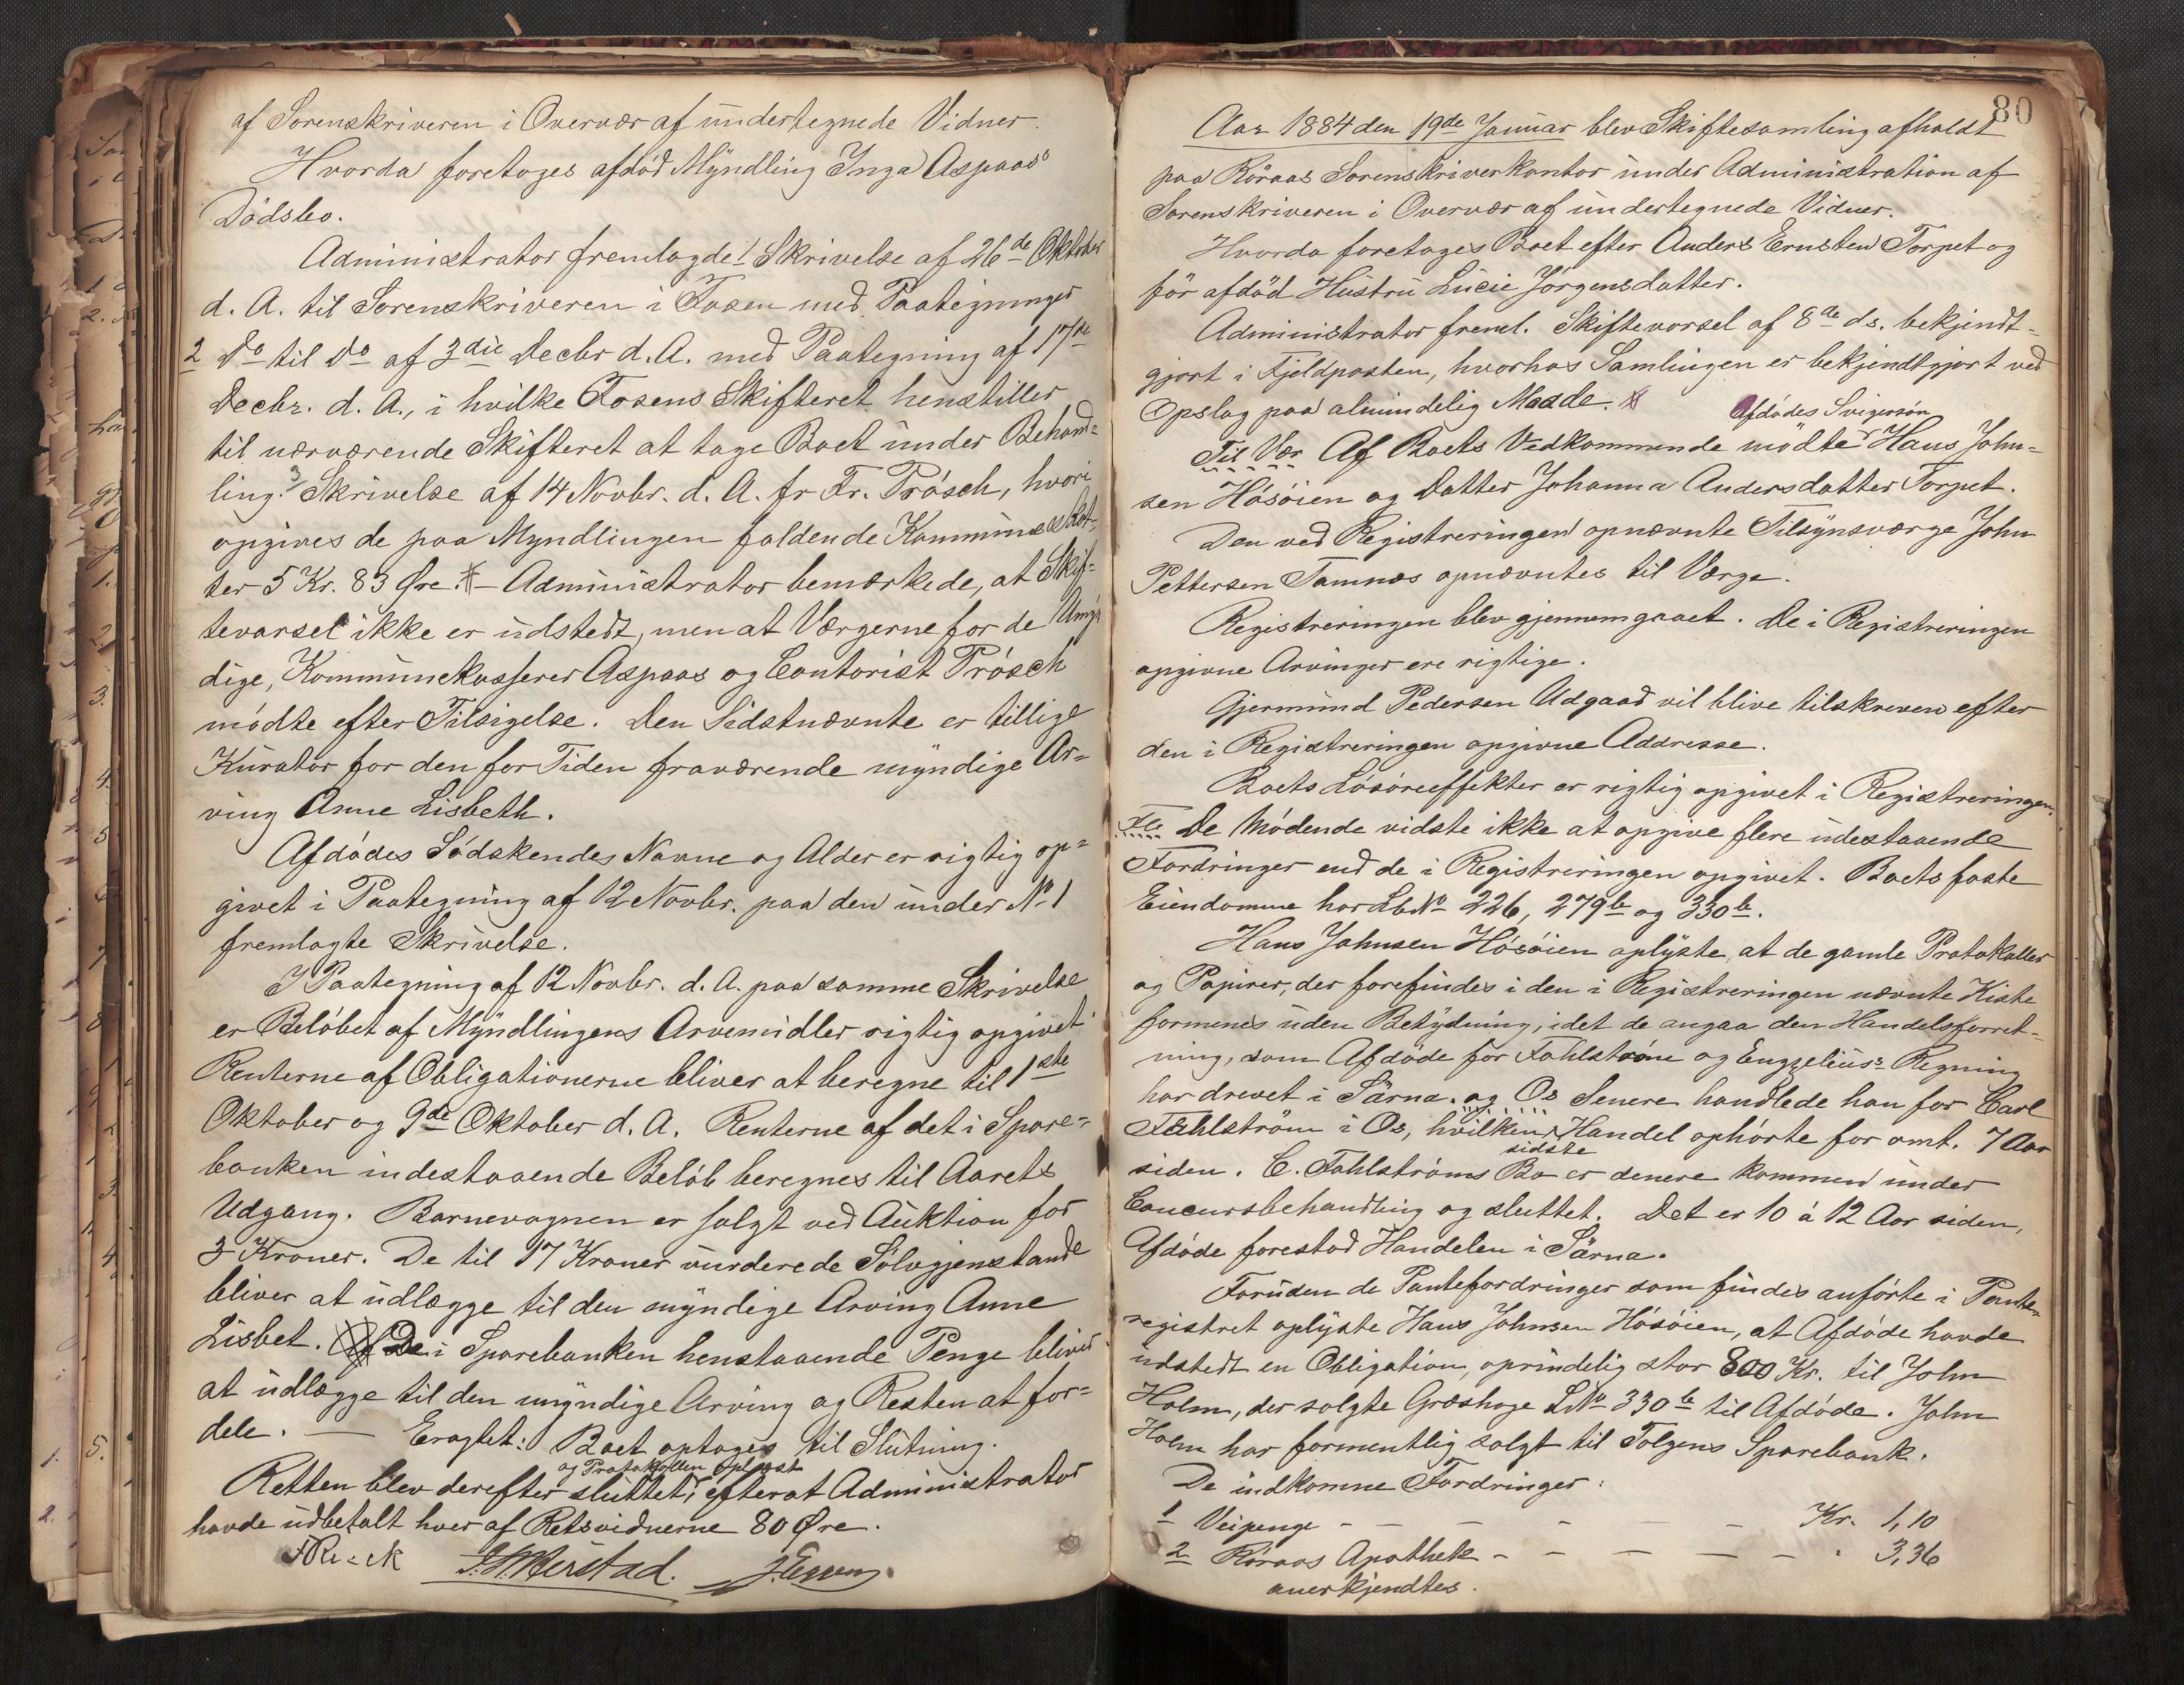 af Sorenskriveren i Overvær af undertegnede Vidner.
Hvorda foretoges afdød Myndling Inga Aspaas's
Dødsbo.
Administrator fremlagde 1 Skrivelse af 26de Oktober
d. A. til Sorenskriveren i Fosen med Paategninger
2 Do til Do af 3die Decbr d. A. med Paategning af 17de
Decbr. d. A., i hvilke Fosens Skifteret henstiller
til nærværende Skifteret at tage Boet under Behand=
ling. 3 Skrivelse af 14 Novbr. d. A. fr Fr. Prösch, hvori
opgives de paa Myndlingen faldende Kommuneskat=
ter 5 Kr. 83 Øre. # — Administrator bemærkede, at Skif=
tevarsel ikke er udstedt, men at Værgerne for de Umyn
dige, Kommunekasserer Aspaas og Contorist Prösch
mödte efter Tilsigelse. Den Sidstnævnte er tillige
Kurator for den for Tiden fraværende myndige Ar=
ving Anne Lisbeth.
Afdödes Södskendes Navne og Alder er rigtig op=
givet i Paategning af 12 Novbr. paa den under No 1
fremlagte Skrivelse.
I Paategning af 12 Novbr. d. A. paa samme Skrivelse
er Belöbet af Myndlingens Arvemidler rigtig opgivet
Renterne af Obligationerne bliver at beregne til 1ste
Oktober og 9de Oktober d. A. Renterne af det i Spare=
banken indestaaende Belöb beregnes til Aarets
Udgang. Barnevognen er solgt ved Auktion for
3 Kroner. De til 17 Kroner vurderede Sölvgjenstande
bliver at udlægge til den myndige Arving Anne
Lisbet. De i Sparebanken henstaaende Penge bliver
at udlægge til den myndige Arving og Resten at for=
dele. — Eragtet: Boet optages til Slutning.
og Protokollen oplæst
Retten blev derefter sluttet, efterat Administrator
havde udbetalt hver af Retsvidnerne 80 Øre.
80
Aar 1884 den 19de Januar blev Skiftesamling afholdt
paa Röraas Sorenskriverkontor under Administration af
Sorenskriveren i Overvær af undertegnede Vidner.
Hvorda foretoges Boet efter Anders Ernsten Torpet og
för afdöd Hustru Lucie Jörgensdatter.
Administrator freml. Skiftevarsel af 8de ds. bekjendt=
gjort i Fjeldposten, hvorhos Samlingen er bekjendtgjort ved
Opslag paa almindelig Maade. #
Afdödes Svigersön
Til Vær Af Boets Vedkommende mödte Hans John=
sen Hösöien og Datter Johanna Andersdatter Torpet.
Den ved Registreringen opnævnte Tilsynsværge John
Pettersen Tamnæs opnævntes til Værge.
Registreringen blev gjennemgaaet. De i Registreringen
opgivne Arvinger ere rigtige.
Gjermund Pedersen Udgaad vil blive tilskreven efter
den i Registreringen opgivne Addresse.
Boets Lösöreeffekter er rigtig opgivet i Registreringen.
Fle De Mödende vidste ikke at opgive flere udestaaende
Fordringer end de i Registreringen opgivet. Boets faste
Eiendomme har LbNo 226, 279b og 330b.
Hans Johnsen Hösöien oplyste, at de gamle Protokoller
og Papirer, der forefindes i den i Registreringen nævnte Kiste
formenes uden Betydning, idet de angaa den Handelsforret=
ning, som Afdöde for Fahlström og Engzelius's Regning
har drevet i Särna. og Os Senere handlede han for Carl
Fahlström i Os, hvilken Handel ophörte for omt. 7 Aar
sidste
siden. C. Fahlströms Bo er senere kommen under
Concursbehandling og sluttet. Det er 10 á 12 Aar siden,
Afdöde forestod Handelen i Särna.
Foruden de Pantefordringer som findes anförte i Pante=
registret oplyste Hans Johnsen Hösöien, at Afdöde havde
udstedt en Obligation, oprindelig stor 800 Kr. til John
Holm, der solgte Græshage LNo 330b til Afdöde. John
Holm har formentlig solgt til Tolgens Sparebank.
De indkomne Fordringer:
1 Veipenge - - - - - - Kr. 1,10
2 Röraas Apothek - - - - - " 3,36
anerkjendtes.